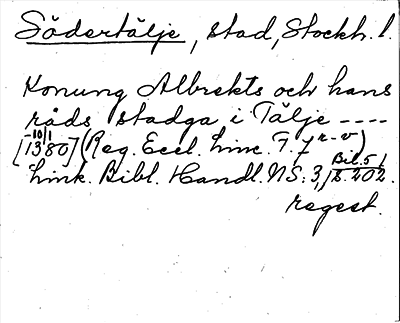 Södertälje, stad, Stockh. l.
Konung Albrekts och hans
råds stadga i Tälje ----
[1380 -10/1] (Reg. Eccl. Linc. F. 7 r-v)
Link. Bibl. Handl. NS: 3, Bil. 5, s. 202.
regest.